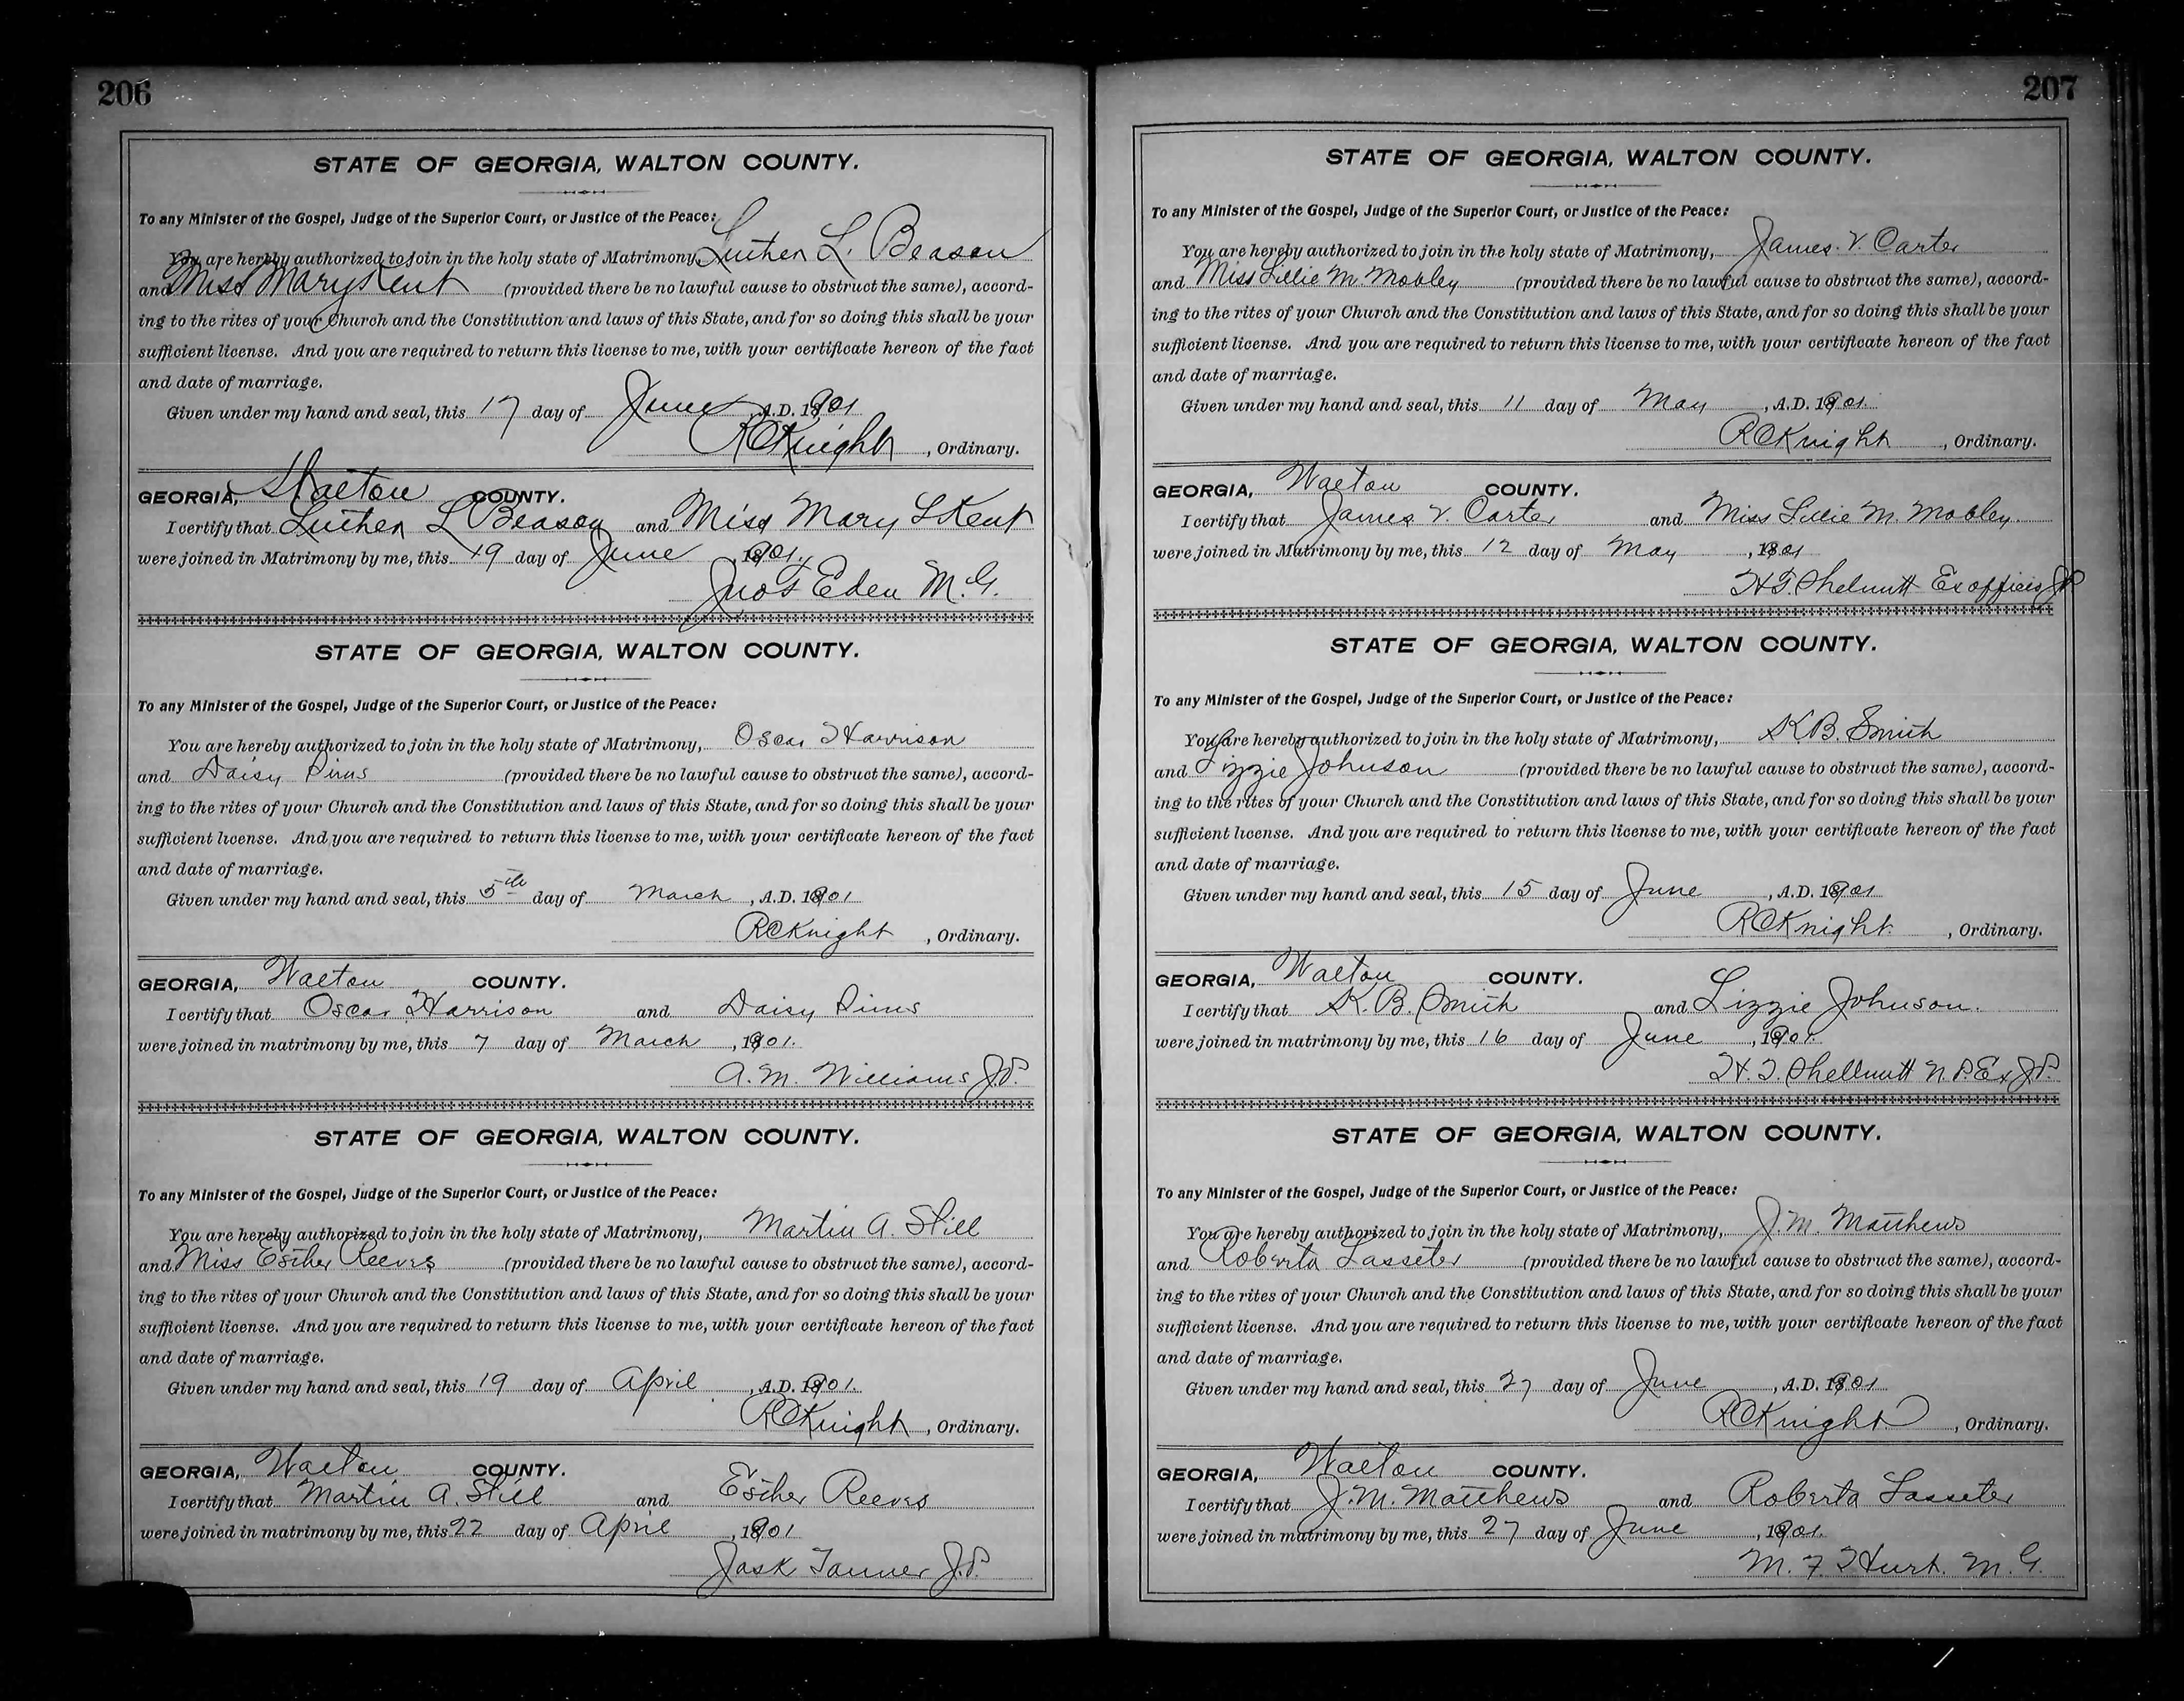 206
STATE OF GEORGIA, WALTON COUNTY.
To any Minister of the Gospel, Judge of the Superior Court, or Justice of the Peace:
You are hereby authorized to join in the holy state of Matrimony, Luther L. Beason
and Miss Mary Kent (provided there be no lawful cause to obstruct the same), accord-
ing to the rites of your Church and the Constitution and laws of this State, and for so doing this shall be your
sufficient license. And you are required to return this license to me, with your certificate hereon of the fact
and date of marriage.
Given under my hand and seal, this 17 day of June A.D. 1901
RCKnight, Ordinary.
GEORGIA, Walton COUNTY.
I certify that Luther L Beason and Miss Mary L Kent
were joined in Matrimony by me, this 19 day of June, 1901.
Jno F Eden M.G.
STATE OF GEORGIA, WALTON COUNTY.
To any Minister of the Gospel, Judge of the Superior Court, or Justice of the Peace:
You are hereby authorized to join in the holy state of Matrimony, Oscar Harrison
and Daisy (provided there be no lawful cause to obstruct the same), accord-
ing to the rites of your Church and the Constitution and laws of this State, and for so doing this shall be your
sufficient license. And you are required to return this license to me, with your certificate hereon of the fact
and date of marriage.
Given under my hand and seal, this 5th day of March, A.D. 1901
RCKnight, Ordinary.
GEORGIA, Walton COUNTY.
I certify that Oscar Harrison and Daisy
were joined in matrimony by me, this 7 day of March, 1901.
A. M. Williams J.P.
STATE OF GEORGIA, WALTON COUNTY.
To any Minister of the Gospel, Judge of the Superior Court, or Justice of the Peace:
You are hereby authorized to join in the holy state of Matrimony, Martin A. Still
and Miss Esther Reeves (provided there be no lawful cause to obstruct the same), accord-
ing to the rites of your Church and the Constitution and laws of this State, and for so doing this shall be your
sufficient license. And you are required to return this license to me, with your certificate hereon of the fact
and date of marriage.
Given under my hand and seal, this 19 day of April, A.D. 1901.
RCKnight, Ordinary.
GEORGIA, Walton COUNTY.
I certify that Martin A. Still and Esther Reeves
were joined in matrimony by me, this 22 day of April, 1901
Jack Tanner J.P.
207
STATE OF GEORGIA, WALTON COUNTY.
To any Minister of the Gospel, Judge of the Superior Court, or Justice of the Peace:
You are hereby authorized to join in the holy state of Matrimony, James V. Carter
and Miss Lillie M. Mobley (provided there be no lawful cause to obstruct the same), accord-
ing to the rites of your Church and the Constitution and laws of this State, and for so doing this shall be your
sufficient license. And you are required to return this license to me, with your certificate hereon of the fact
and date of marriage.
Given under my hand and seal, this 11 day of May, A.D. 1901.
RCKnight, Ordinary.
GEORGIA, Walton COUNTY.
I certify that James V. Carter and Miss Lillie M. Mobley.
were joined in Matrimony by me, this 12 day of May, 1901
H.T. Shelnutt Ex officio JP
STATE OF GEORGIA, WALTON COUNTY.
To any Minister of the Gospel, Judge of the Superior Court, or Justice of the Peace:
You are hereby authorized to join in the holy state of Matrimony, K. B. Smith
and Lizzie Johnson (provided there be no lawful cause to obstruct the same), accord-
ing to the rites of your Church and the Constitution and laws of this State, and for so doing this shall be your
sufficient license. And you are required to return this license to me, with your certificate hereon of the fact
and date of marriage.
Given under my hand and seal, this 15 day of June, A.D. 1901
RCKnight. , Ordinary.
GEORGIA, Walton COUNTY.
I certify that K. B. Smith and Lizzie Johnson.
were joined in matrimony by me, this 16 day of June, 1901.
H. T. Shellnutt N.P. Ex J.P.
STATE OF GEORGIA, WALTON COUNTY.
To any Minister of the Gospel, Judge of the Superior Court, or Justice of the Peace:
You are hereby authorized to join in the holy state of Matrimony, J. M. Matthews
and Roberta Lasseter (provided there be no lawful cause to obstruct the same), accord-
ing to the rites of your Church and the Constitution and laws of this State, and for so doing this shall be your
sufficient license. And you are required to return this license to me, with your certificate hereon of the fact
and date of marriage.
Given under my hand and seal, this 27 day of June, A.D. 1901
RCKnight, Ordinary.
GEORGIA, Walton COUNTY.
I certify that J. M. Matthews and Roberta Lasseter
were joined in matrimony by me, this 27 day of June, 1901.
M. F. Hurt. M.G.